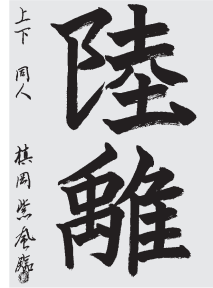 陸離
上下 同人
棋岡紫風臨